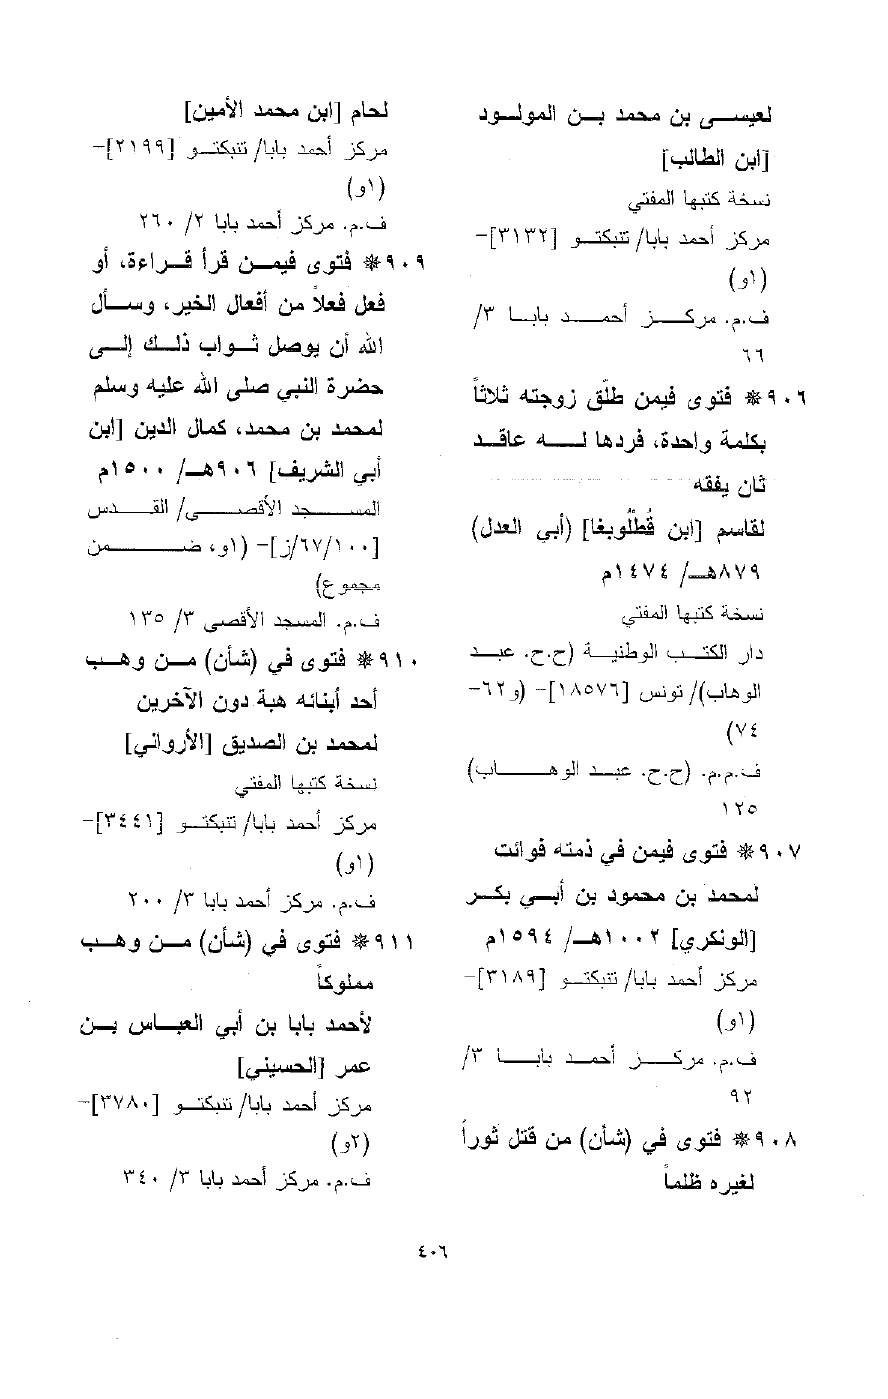 لعيسى بن محمد بن المولود
[ابن الطالب]
نسخة كتبها المفتي
مركز أحمد بابا/ تنبكتو [٣١٣٢]-
(١و)
ف.م. مركز أحمد بابا ٣/
٦٦
٩٠٦* فتوى فيمن طلّق زوجته ثلاثاً
بكلمة واحدة، فردها له عاقد
ثان يفقه
لقاسم [ابن قُطلُوبغا] (أبي العدل)
٨٧٩هـ/ ١٤٧٤م
نسخة كتبها المفتي
دار الكتب الوطنية (ح.ح. عبد
الوهاب)/ تونس [١٨٥٧٦]- (و٦٢-
٧٤)
ف.م.م. (ح.ح. عبد الوهاب)
١٢٥
٩٠٧* فتوى فيمن في ذمته فوائت
لمحمد بن محمود بن أبي بكر
[الونكري] ١٠٠٢هـ/ ١٥٩٤م
مركز أحمد بابا/ تنبكتو [٣١٨٩]-
(١و)
ف.م. مركز أحمد بابا ٣/
٩٢
٩٠٨* فتوى في (شأن) من قتل ثوراً
لغيره ظلماً
لحام [ابن محمد الأمين]
مركز أحمد بابا/ تنبكتو [٢١٩٩]-
(١و)
ف.م. مركز أحمد بابا ٢/ ٢٦٠
٩٠٩* فتوى فيمن قرأ قراءة، أو
فعل فعلاً من أفعال الخير، وسأل
الله أن يوصل ثواب ذلك إلى
حضرة النبي صلى الله عليه وسلم
لمحمد بن محمد، كمال الدين [ابن
أبي الشريف] ٩٠٦هـ/ ١٥٠٠م
المسجد الأقصى/ القدس
[٦٧/١٠٠/ز]- (١و، ضمن
مجموع)
ف.م. المسجد الأقصى ٣/ ١٣٥
٩١٠* فتوى في (شأن) من وهب
أحد أبنائه هبة دون الآخرين
لمحمد بن الصديق [الأرواني]
نسخة كتبها المفتي
مركز أحمد بابا/ تنبكتو [٣٤٤١]-
(١و)
ف.م. مركز أحمد بابا ٣/ ٢٠٠
٩١١* فتوى في (شأن) من وهب
مملوكاً
لأحمد بابا بن أبي العباس بن
عمر [الحسيني]
مركز أحمد بابا/ تنبكتو [٣٧٨٠]-
(٢و)
ف.م. مركز أحمد بابا ٣/ ٣٤٠
٤٠٦